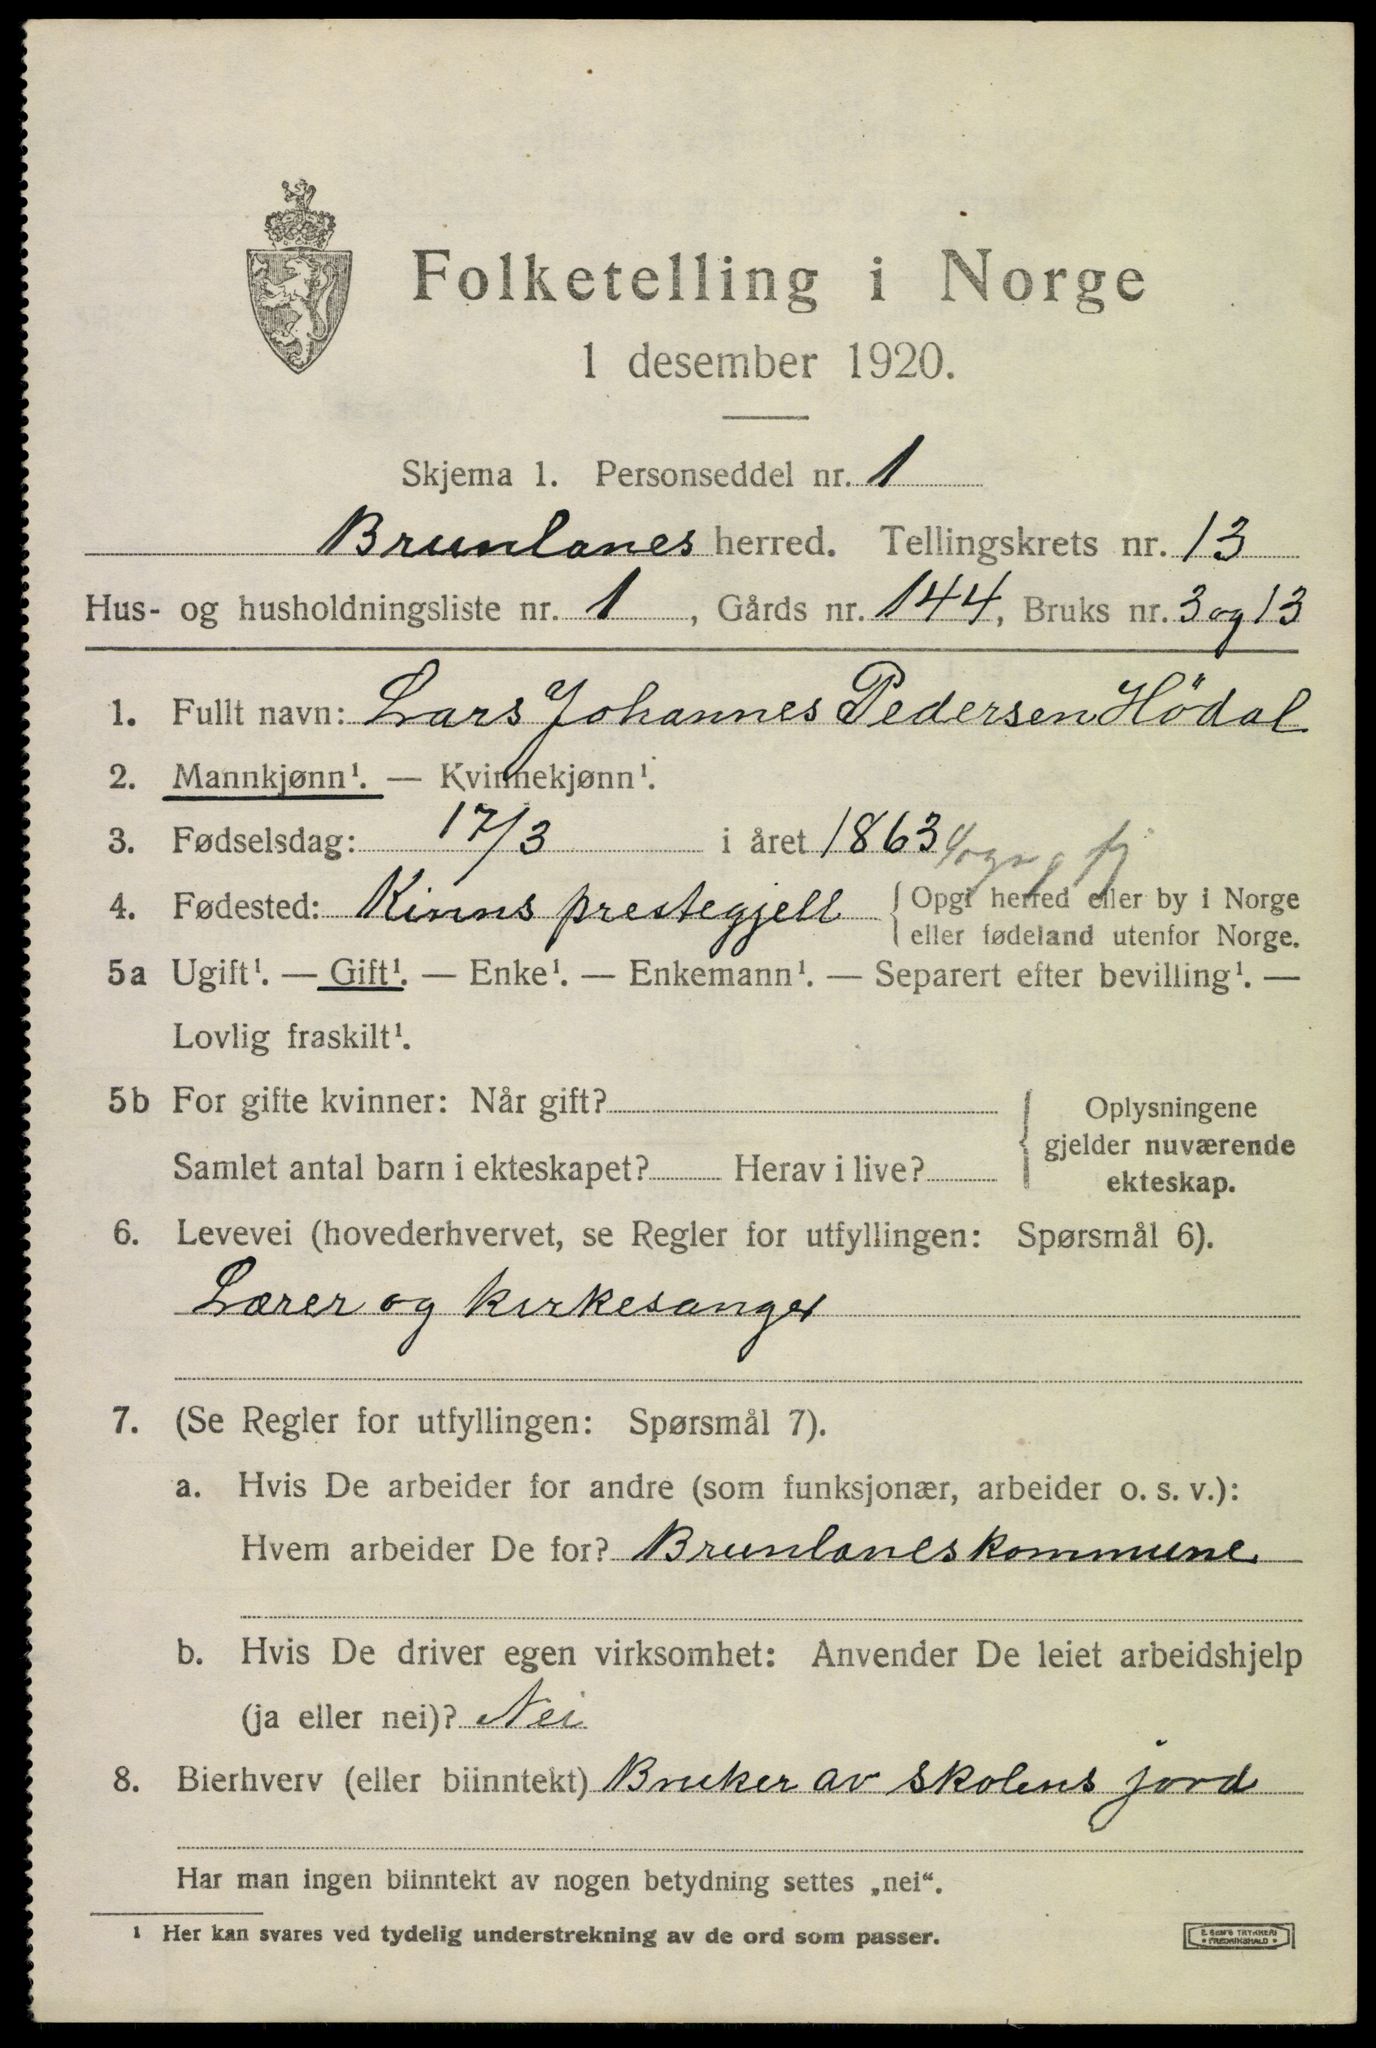 Folketelling i Norge
1 desember 1920.
Skjema 1. Personseddel nr. 1
Brunlanes herred. Tellingskrets nr. 13
Hus- og husholdningsliste nr. 1, Gårds nr. 144, Bruks nr. 3 og 13
1. Fullt navn: Lars Johannes Pedersen Hödal
2. Mannkjønn¹. — Kvinnekjønn¹.
3. Fødselsdag: 17/3 i året 1863
4. Fødested: Kinns prestegjell { Opgi herred eller by i Norge
eller fødeland utenfor Norge.
5a Ugift¹. — Gift¹. — Enke¹. — Enkemann¹. — Separert efter bevilling¹. —
Lovlig fraskilt¹.
5b For gifte kvinner: Når gift?
Samlet antal barn i ekteskapet? Herav i live?
Oplysningene
gjelder nuværende
ekteskap.
6. Levevei (hovederhvervet, se Regler for utfyllingen: Spørsmål 6).
Lærer og kirkesanger
7. (Se Regler for utfyllingen: Spørsmål 7).
a. Hvis De arbeider for andre (som funksjonær, arbeider o. s. v.):
Hvem arbeider De for? Brunlanes kommune
b. Hvis De driver egen virksomhet: Anvender De leiet arbeidshjelp
(ja eller nei)? Nei
8. Bierhverv (eller biinntekt) Bruker av skolens jord
Har man ingen biinntekt av nogen betydning settes „nei“.
¹ Her kan svares ved tydelig understrekning av de ord som passer.
E. SEM'S TRYKKERI
FREDRIKSHALD